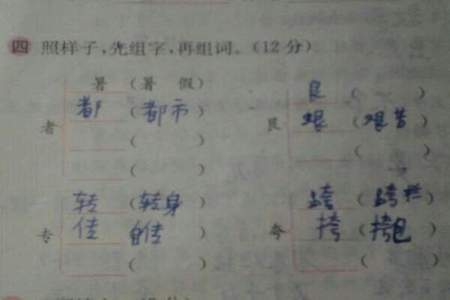 四 照样子,先组字,再组词。(12分)
者
暑 (暑 假)
都 (都市)
( )
( )
艮
( )
艰 (艰苦)
( )
专
转 (转身)
传 自传 )
( )
夸
跨 (跨栏)
挎 (挎包)
( )